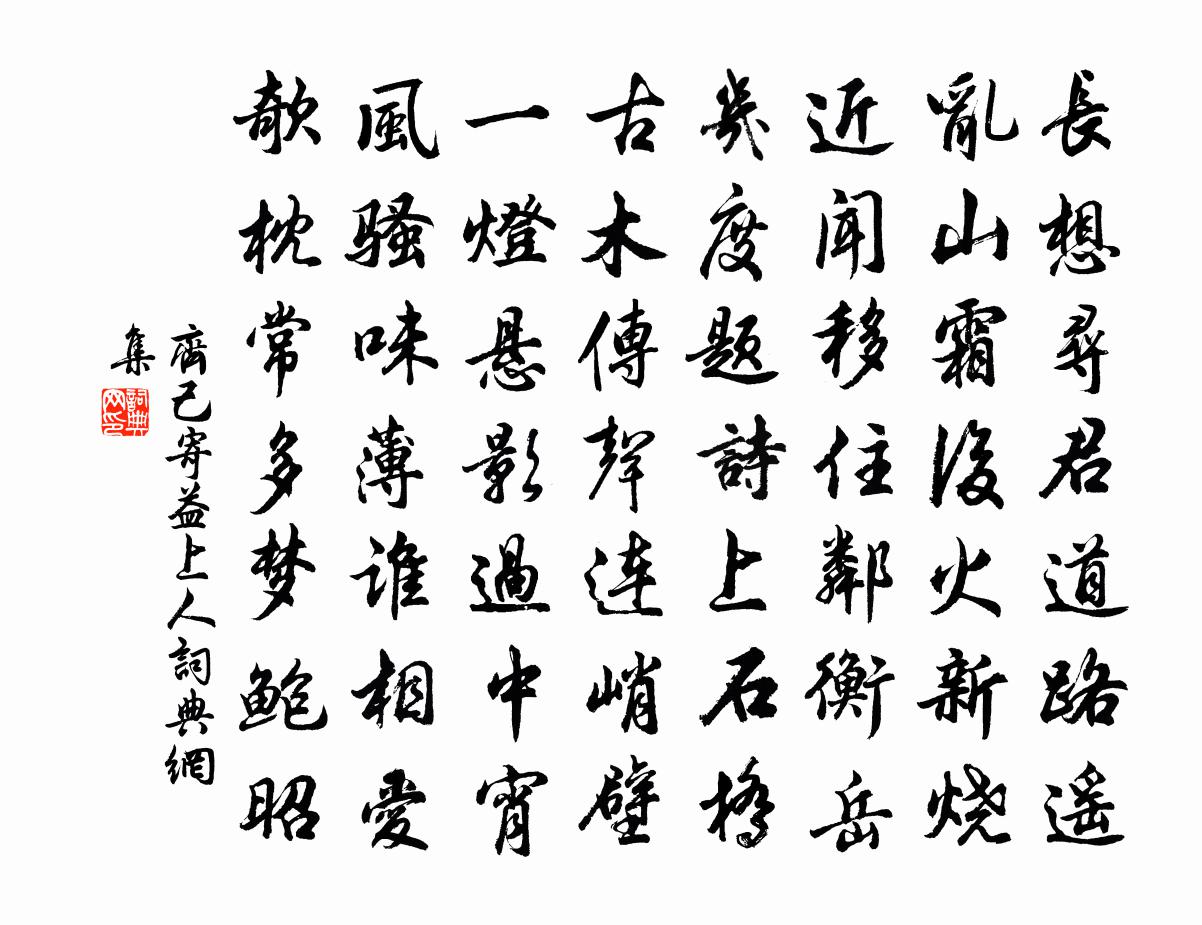 長想尋君道路遥
亂山霜後火新燒
近聞移住鄰衡岳
幾度題詩上石橋
古木傳聲連峭壁
一燈懸影過中宵
風騷味薄谁相愛
欹枕常多梦鲍昭
齊己寄益上人詞典網
集
詞典
网印